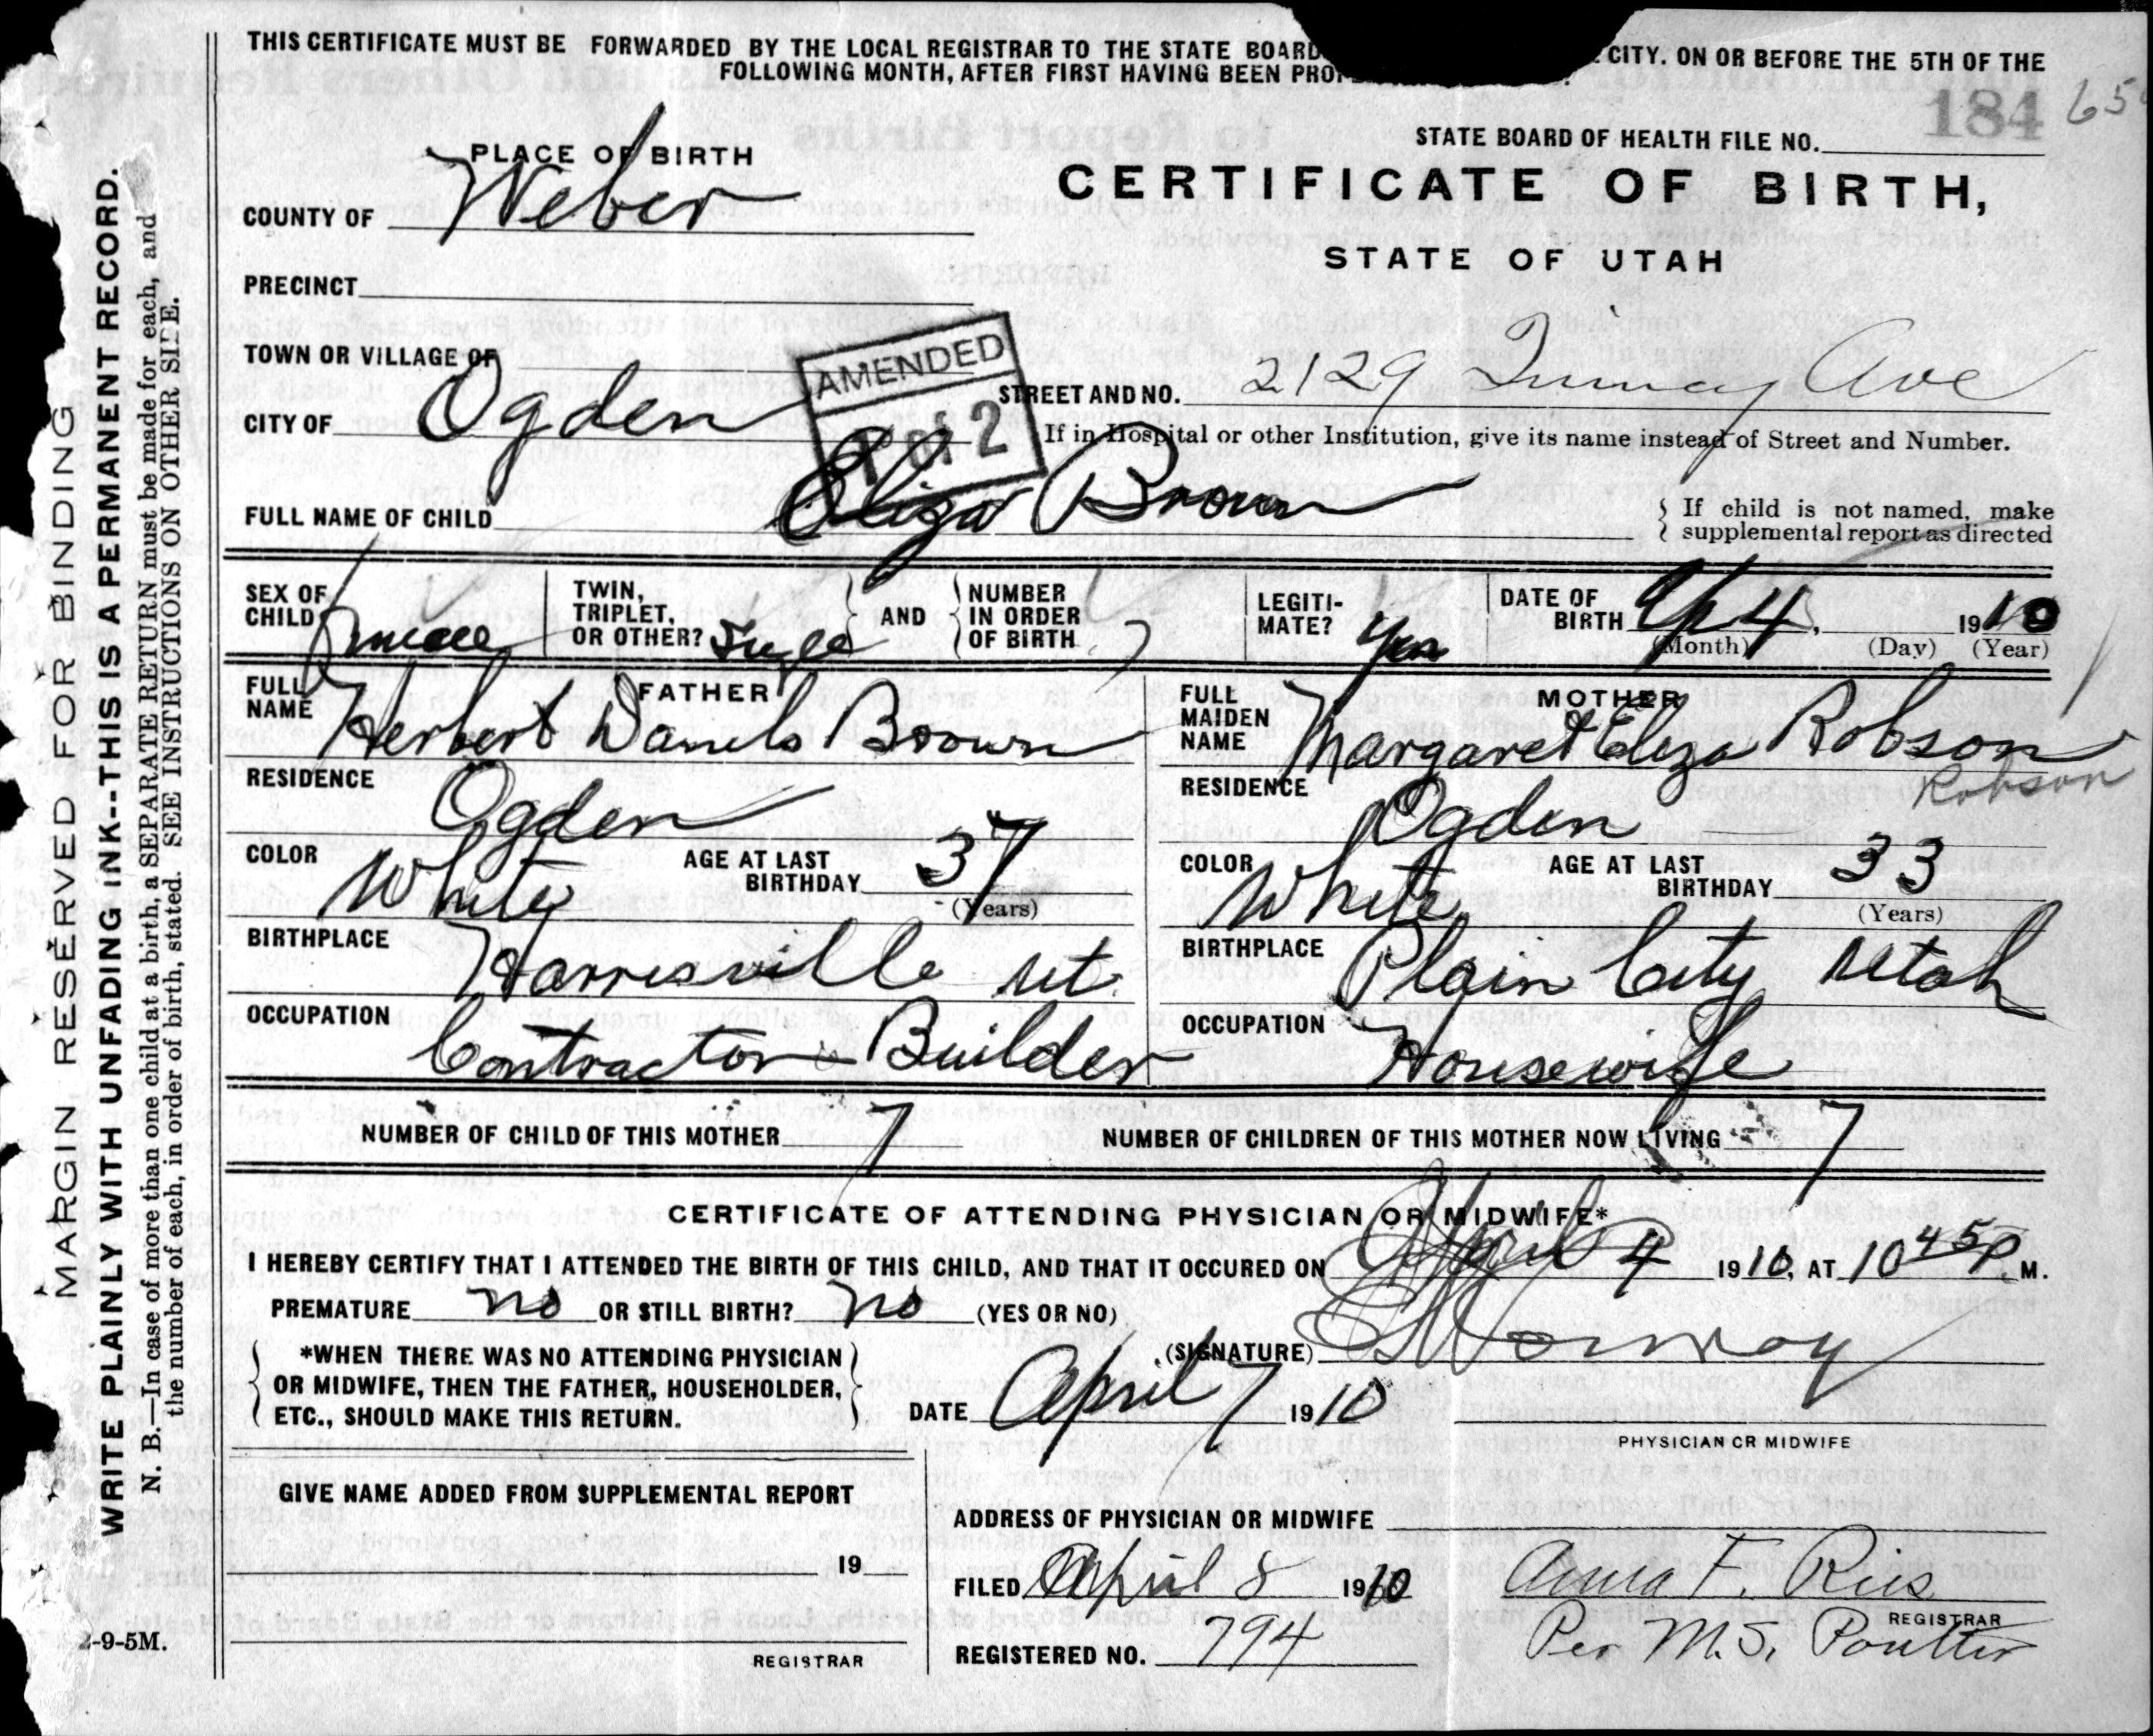 THIS CERTIFICATE MUST BE FORWARDED BY THE LOCAL REGISTRAR TO THE STATE BOARD CITY. ON OR BEFORE THE 5TH OF THE
FOLLOWING MONTH, AFTER FIRST HAVING BEEN
184 65
STATE BOARD OF HEALTH FILE NO.
PLACE OF BIRTH
CERTIFICATE OF BIRTH,
COUNTY OF Weber
STATE OF UTAH
PRECINCT
TOWN OR VILLAGE OF
AMENDED
1 of 2
STREET AND NO. 2129 Ave
CITY OF Ogden
If in Hospital or other Institution, give its name instead of Street and Number.
FULL NAME OF CHILD Eliza Brown
If child is not named, make
supplemental report as directed
SEX OF CHILD TWIN, TRIPLET, OR OTHER? Single AND NUMBER IN ORDER OF BIRTH 7 LEGITIMATE? Yes DATE OF BIRTH 4 1910
(Month) (Day) (Year)
FATHER
FULL NAME Herbert Daniels Brown
MOTHER
FULL MAIDEN NAME Margaret Eliza Robson
Robson
RESIDENCE Ogden
RESIDENCE Ogden
COLOR White AGE AT LAST BIRTHDAY 37 (Years)
COLOR White AGE AT LAST BIRTHDAY 33 (Years)
BIRTHPLACE Harrisville Ut.
BIRTHPLACE Plain City Utah
OCCUPATION Contractor & Builder
OCCUPATION Housewife
NUMBER OF CHILD OF THIS MOTHER 7 NUMBER OF CHILDREN OF THIS MOTHER NOW LIVING 7
CERTIFICATE OF ATTENDING PHYSICIAN OR MIDWIFE*
I HEREBY CERTIFY THAT I ATTENDED THE BIRTH OF THIS CHILD, AND THAT IT OCCURED ON April 4 1910, AT 10 45 P. M.
PREMATURE no OR STILL BIRTH? no (YES OR NO)
*WHEN THERE WAS NO ATTENDING PHYSICIAN
OR MIDWIFE, THEN THE FATHER, HOUSEHOLDER,
ETC., SHOULD MAKE THIS RETURN.
(SIGNATURE)
DATE April 7 1910
PHYSICIAN OR MIDWIFE
GIVE NAME ADDED FROM SUPPLEMENTAL REPORT
19
REGISTRAR
ADDRESS OF PHYSICIAN OR MIDWIFE
FILED April 8 1910 Anna F. Ries
REGISTRAR
REGISTERED NO. 794 Per M. S. Poulter
2-9-5M.
MARGIN RESERVED FOR BINDING
WRITE PLAINLY WITH UNFADING INK--THIS IS A PERMANENT RECORD.
N. B.—In case of more than one child at a birth, a SEPARATE RETURN must be made for each, and
the number of each, in order of birth, stated. SEE INSTRUCTIONS ON OTHER SIDE.